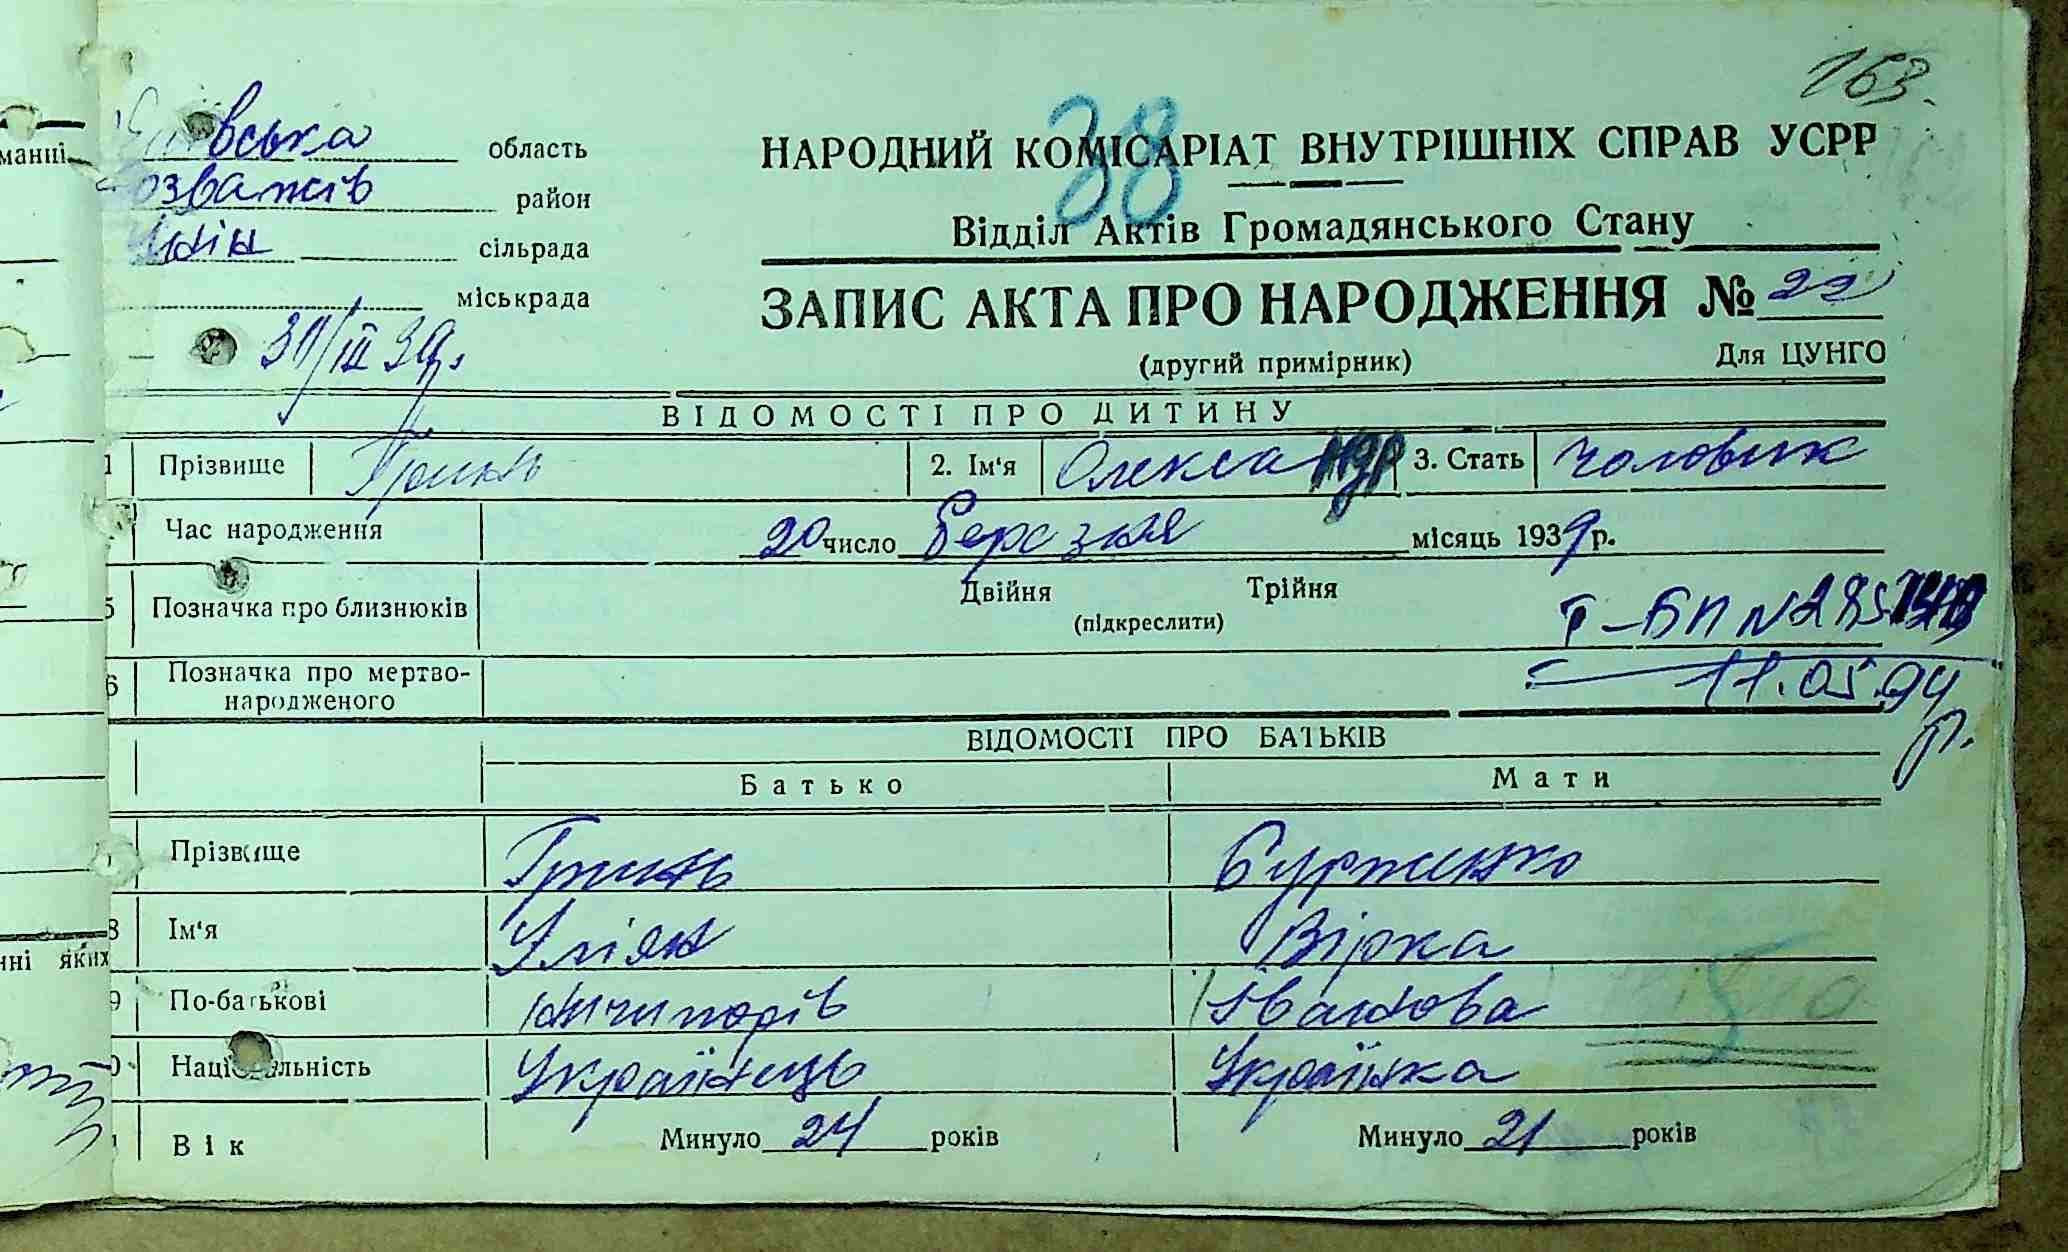 163.
38
Київська область
Розважів район
сільрада
міськрада
31/III 39р.
НАРОДНИЙ КОМІСАРІАТ ВНУТРІШНІХ СПРАВ УСРР
Відділ Актів Громадянського Стану
ЗАПИС АКТА ПРО НАРОДЖЕННЯ № 22
(другий примірник) Для ЦУНГО
ВІДОМОСТІ ПРО ДИТИНУ
1 Прізвище Гринь 2. Ім'я Олександр 3. Стать чоловик
Час народження 20 число березня місяць 1939 р.
5 Позначка про близнюків Двійня Трійня
(підкреслити)
І-БП N
6 Позначка про мертво-
народженого
11.05.94
р.
ВІДОМОСТІ ПРО БАТЬКІВ
Батько Мати
Прізвище Гринь
8 Ім'я Уліян Вірка
9 По-батькові Ничипорів Іванова
Національність Українець Українка
Вік Минуло 24 років Минуло 21 років
манні
нні яких